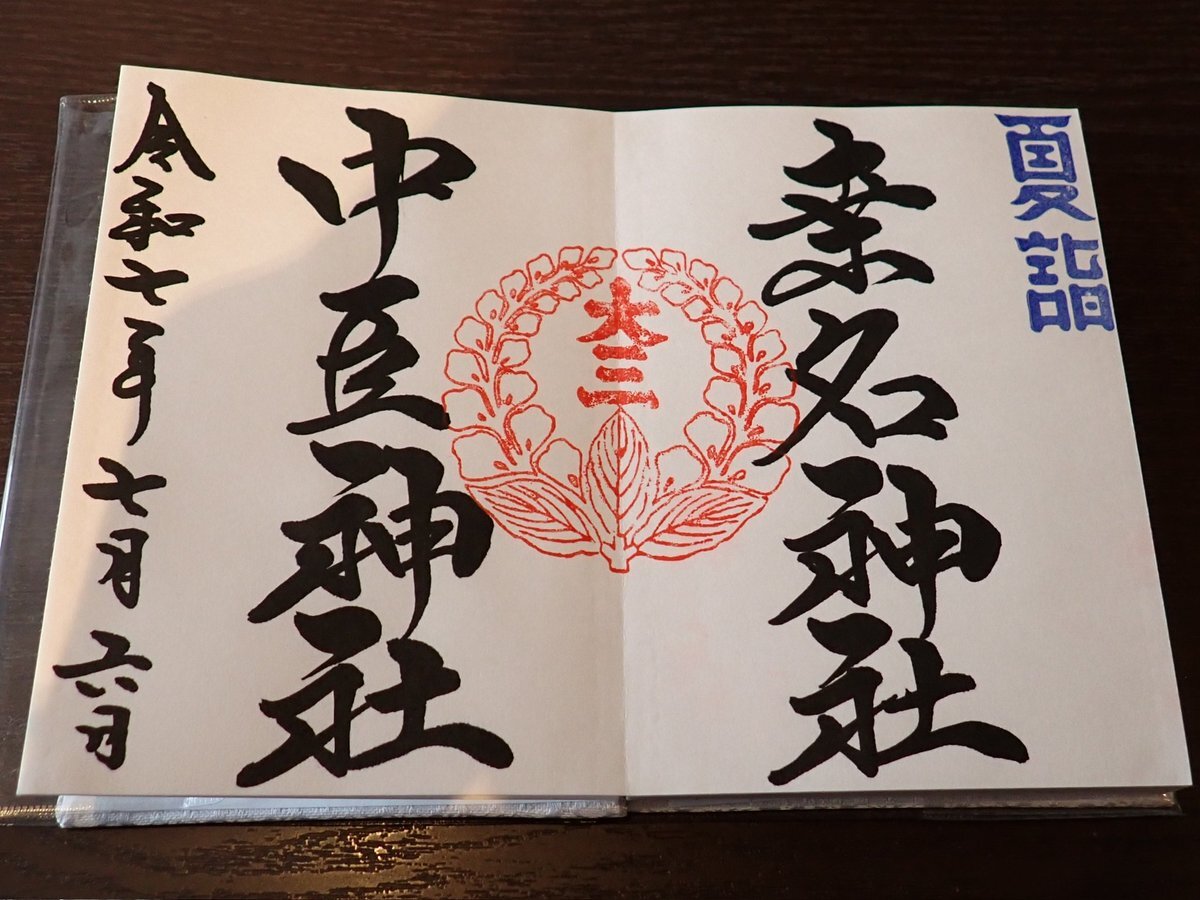 夏詣
桑名神社
大三
中臣神社
令和七年 七月 六日